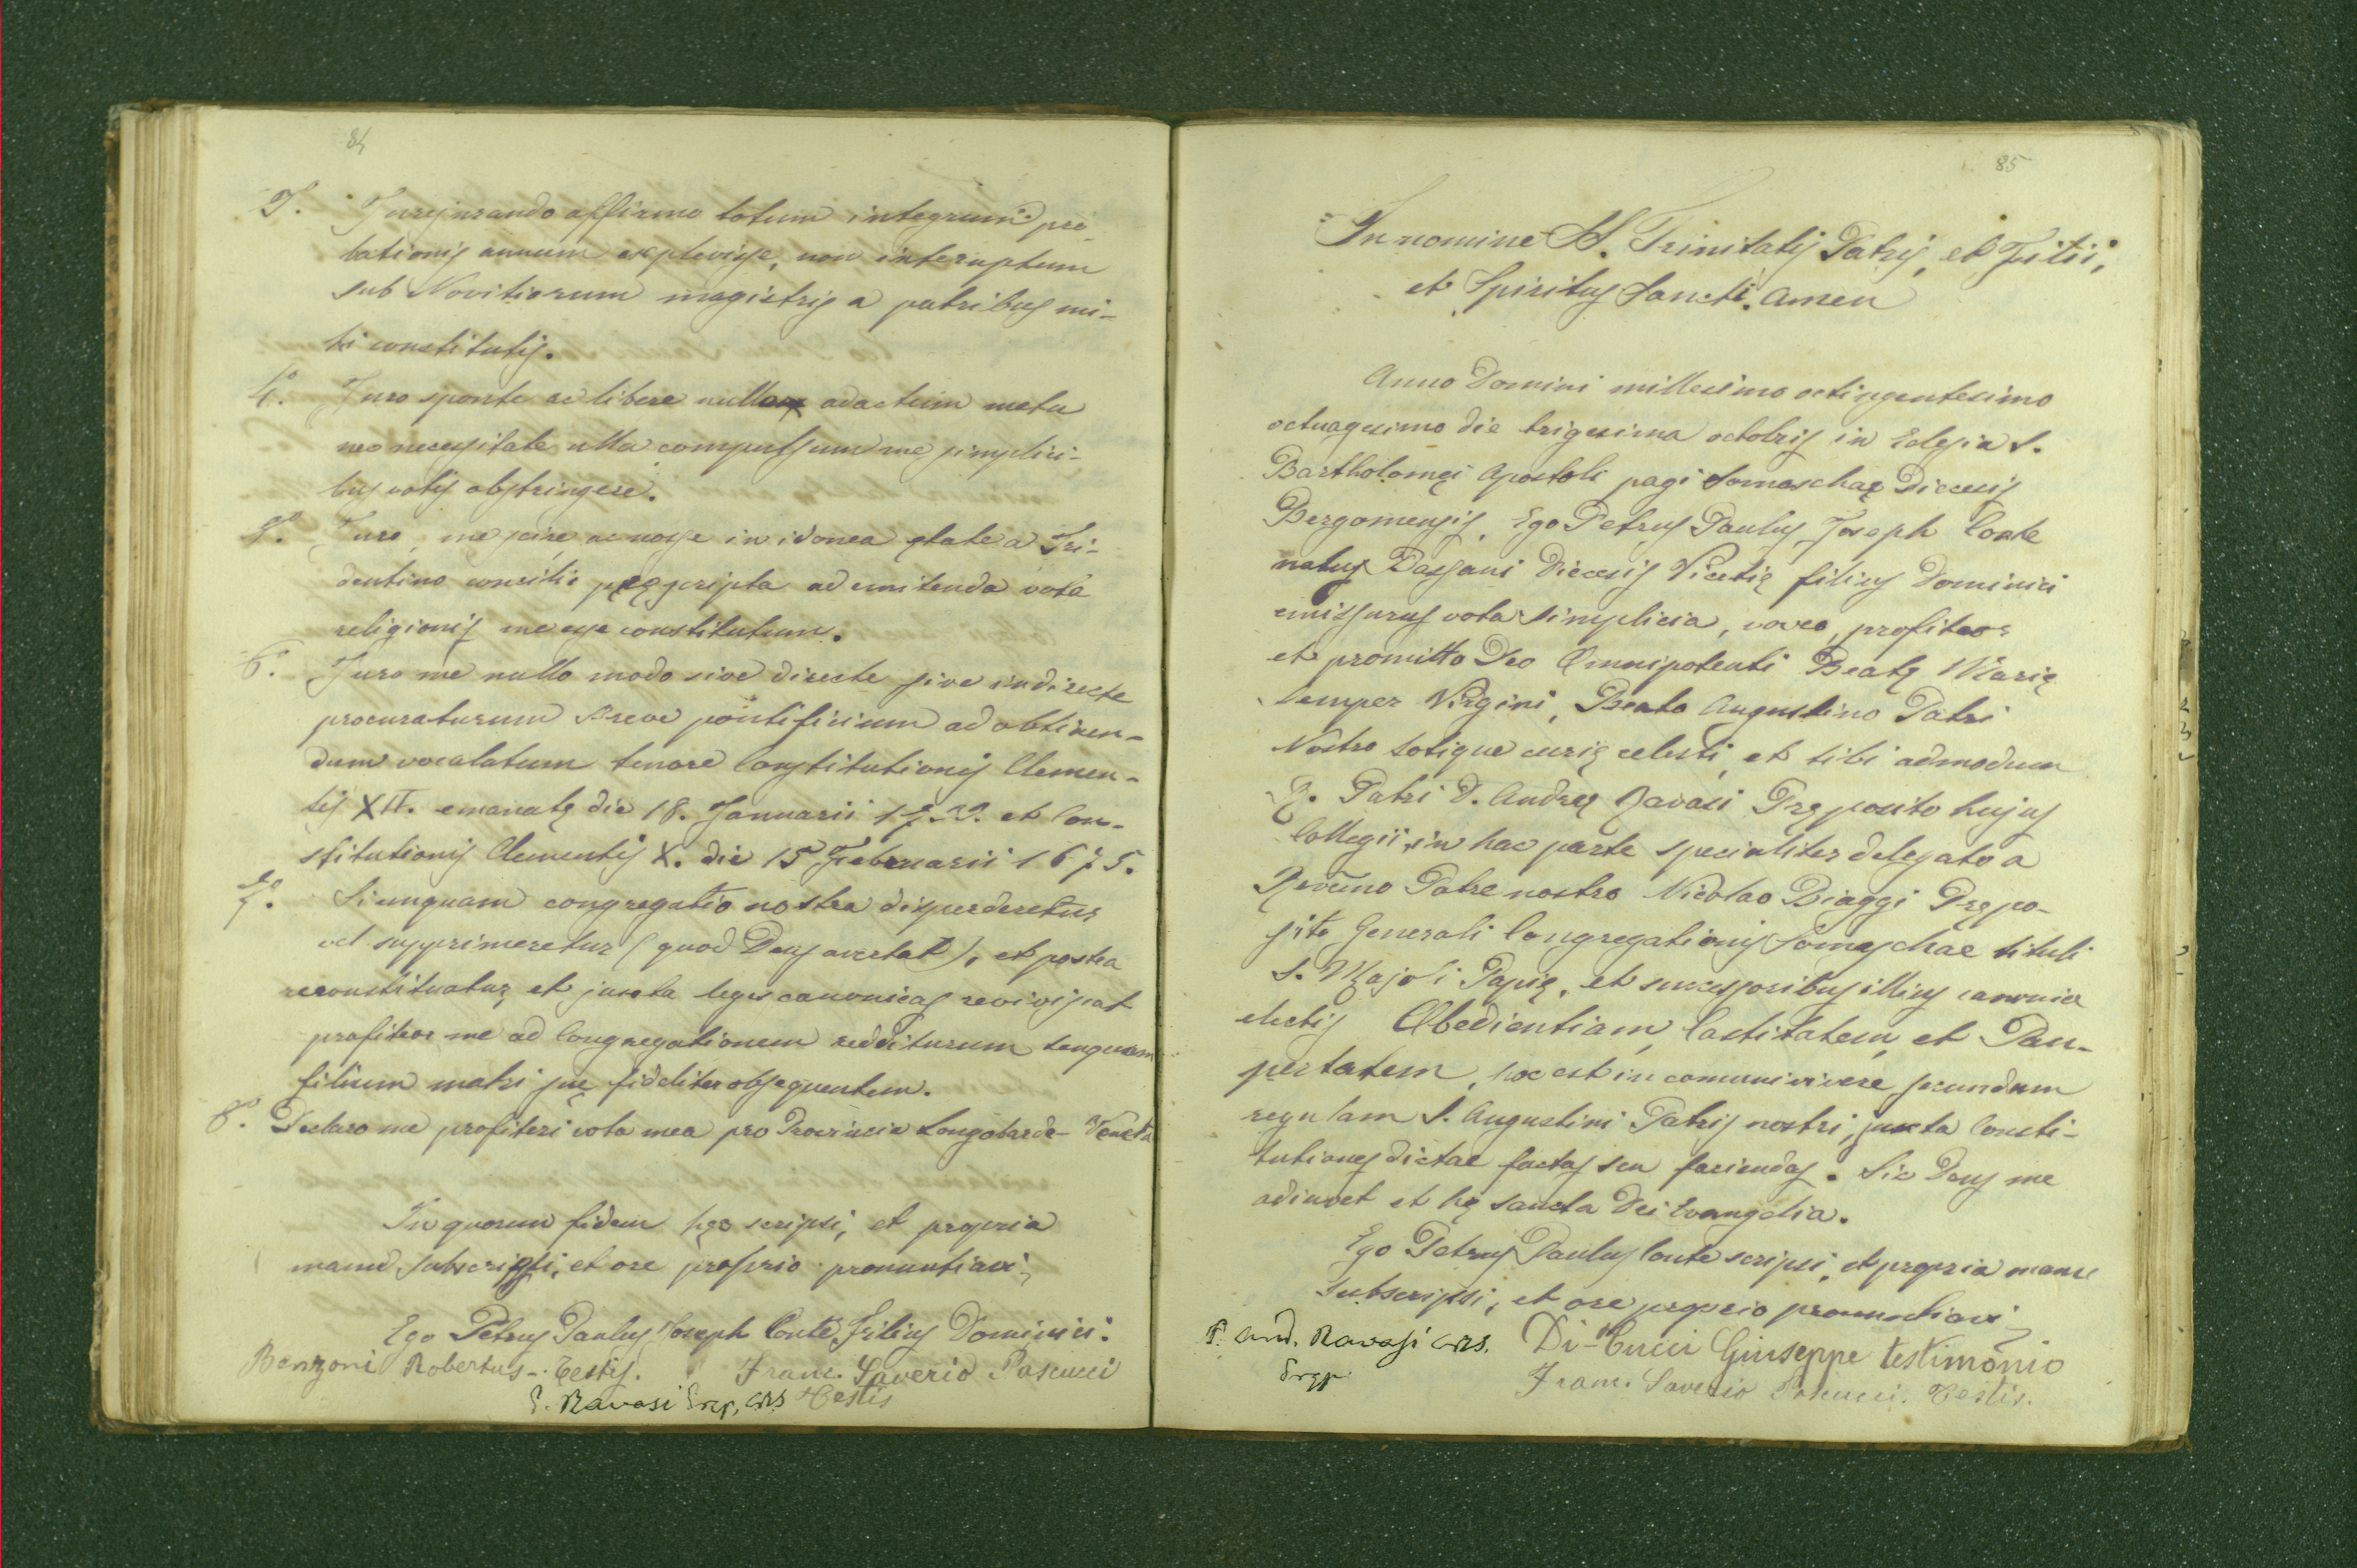 84
3. Jurejurando affirmo totum integrum pro
bationis annum explevisse, non interuptum
sub Novitiorum magistris a patribus mi-
hi constitutis.
4.° Juro sponte ac libere nullo adactum metu
neo necessitate ulla compulsum me simplici-
bus votis obstringere.
5.° Juro, me scire ac nosse in idonea ętate a Tri-
dentino concilio pręscripta ad emitenda vota
religionis me esse constitutum.
6.° Juro me nullo modo sive directe sive indirecte
procuraturum Breve pontificium ad obtinen-
dum vocalatum tenore Constitutionis Clemen-
tis XII. emanatę die 18. Januarii et Con-
stitutionis Clementis X. die 15 Februarii 1675.
7.° Si unquam congregatio nostra disperderetur
vel supprimeretur (quod Deus avertat), et postea
reconstituatur, et juxta leges canonicas reviviscat
profiteor me ad Congregationem redditurum tanquam
filium matri suę fideliter obsequentem.
8.° Declaro me profiteri vota mea pro Provincia Longobardo-Veneta
In quorum fidem hęc scripsi, et propria
manu subscripsi, et ore proprio pronuntiavi
Ego Petrus Paulus Joseph Conte Filius Dominici.
Benzoni Robertus - Testis. Franc. Saverio Pascucci
P. Ravasi Pręp. CRS Testis
85
In nomine SS. Trinitatis Patris, et Filii,
et Spiritus Sancti. Amen
Anno Domini millesimo octingentesimo
octuagesimo die trigesima octobris in Eclesia S.
Bartholomęi Apostoli pagi Somaschaę Diecesis
Bergomensis, Ego Petrus Paulus Joseph Conte
natus Bassani Diecesis Vicetię filius Dominici
emissurus vota simplicia, voveo, profiteor
et promitto Deo Omnipotenti Beatę Marię
semper Virgini, Beato Augustino Patri
Nostro totique curię celesti, et tibi admodum
R. Patri D. Andreę Ravasi Pręposito hujus
Collegii, in hac parte specialiter delegato a
Rev̄mo Patre nostro Nicolao Biaggi Prępo-
sito Generali Congregationis Somaschae tituli
S. Majoli Papię, et successoribus illius canonice
electis Obedientiam, Castitatem, et Pau-
pertatem, hoc est in comuni vivere secundum
regulam S. Augustini Patris nostri, juxta Consti-
tutiones dictae factas seu faciendas. Sic Deus me
adiuvet et hę sancta Dei Evangelia.
Ego Petrus Paulus Conte scripsi, et propria manu
subscripsi, et ore proprio pronuntiavi
P. And. Ravasi CRS. Di-Cucci Giuseppe testimonio
Pręp. Franc. Saverio Pascucci. Testis.